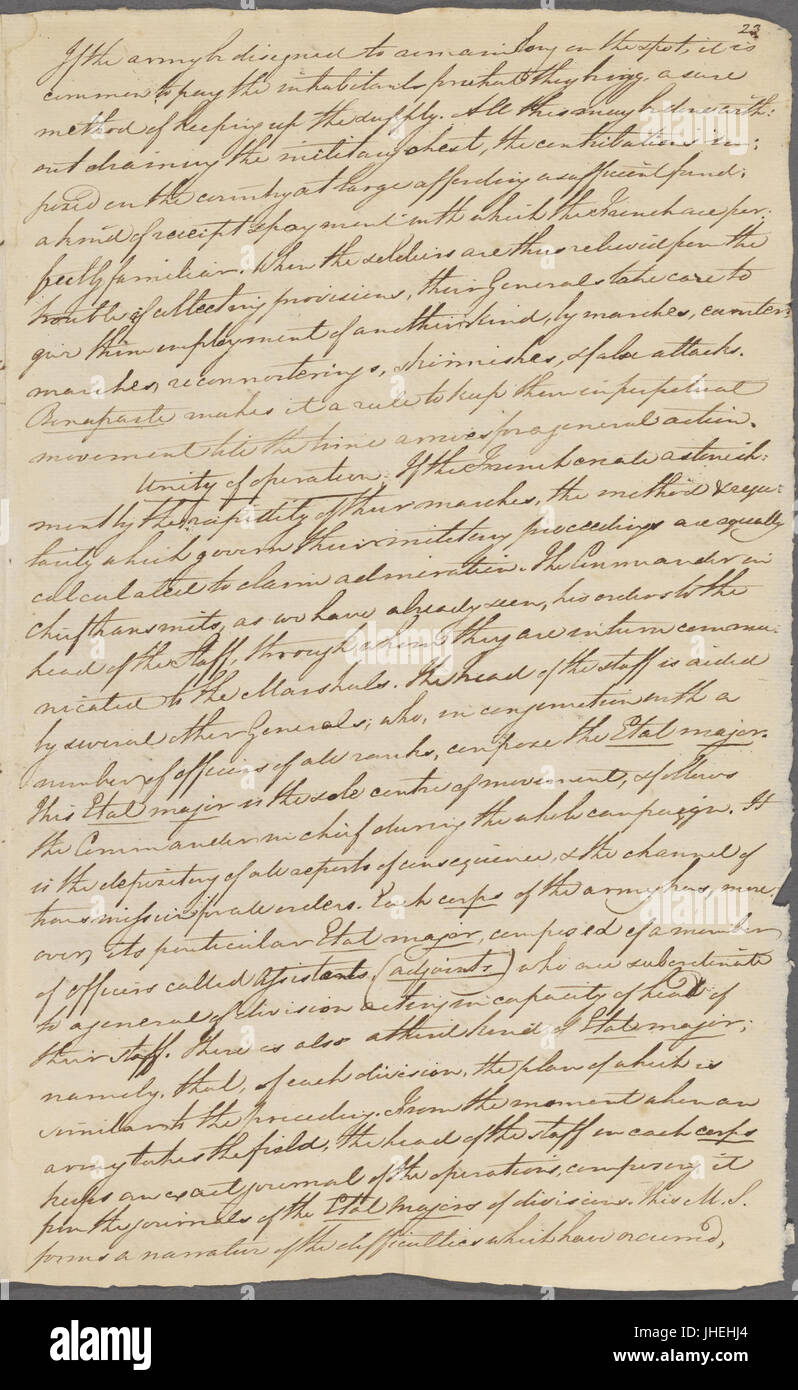 23
If the army be disigned to remain long on the spot, it is
common to pay the inhabitants for what they bring, a sure
method of keeping up the supply. All this may be done with:
out draining the military chest, the contributions im:
posed on the country at large affording a sufficient fund;
a kind of receipt & payment with which the French are per:
fectly familiar. When the soldiers are thus relieved from the
trouble of collecting provisions, their Generals take care to
give them employment of another kind, by marches, counter:
marches, reconnoiterings, skirmishes, & false attacks.
Bonaparte makes it a rule to keep them in perpetual
movement till the time arrives for a general action.
Unity of operation. If the French create astonish:
ment by the rapidity of their marches, the method & regu:
larity which govern their military proceedings are equally
calculated to claim admiration. The Commander in
chief transmits, as we have already seen, his orders to the
head of the Staff, through whom they are in turn commu:
nicated to the Marshals. The head of the staff is aided
by several other Generals, who, in conjunction with a
number of officers of all ranks, compose the Etat major.
This Etat major is the sole centre of movement, & follows
the Commander in chief during the whole campaign. It
is the depository of all reports of consequence, & the channel of
transmission for all orders. Each corps of the army has, more
over, its particular Etat major, composed of a number
of officers called Assistants, (adjoints) who are subordinate
to a general of division acting in capacity of head of
their staff. There is also a third kind of Etat major;
namely, that, of each division, the plan of which is
similar to the preceding. From the moment when an
army takes the field, the head of the staff in each corps
keeps an exact journal of the operations, composing it
from the journals of the Etat Majors of divisions. This M.S.
forms a narrative of the difficulties which have occurred,
alamy
Image ID: JHEHJ4
www.alamy.com